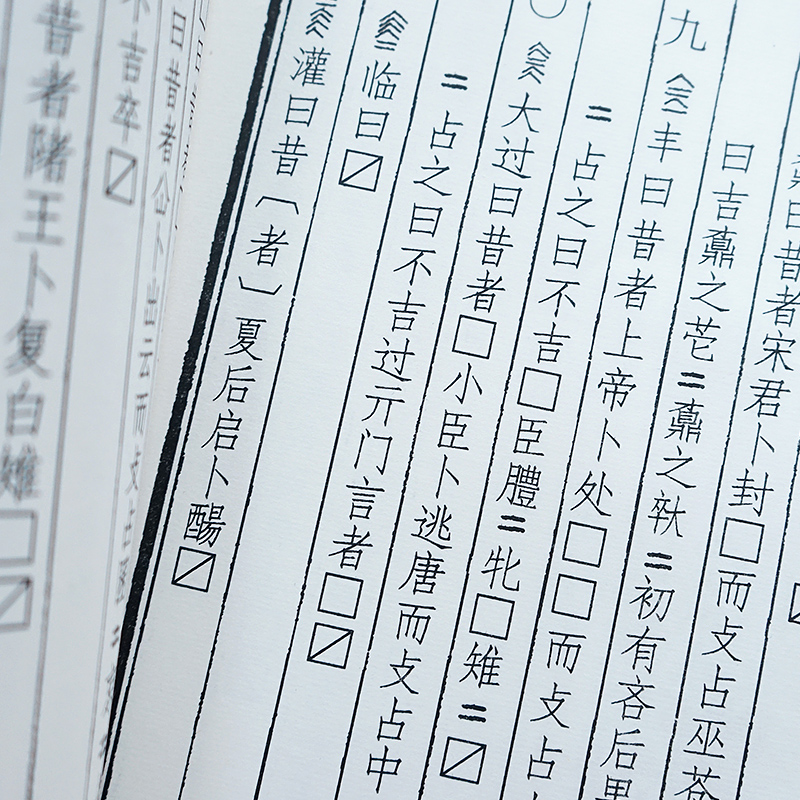 曰昔者宋君卜封□而攴占巫苍
曰吉之芼＝之＝初有吝后果
九 丰曰昔者上帝卜处□□而攴占
＝占之曰不吉□臣膿＝牝□雉＝〼
大过曰昔者□小臣卜逃唐而攴占中
＝占之曰不吉过亓门言者□〼
临曰〼
灌曰昔〔者〕夏后启卜〼
曰昔者卜出云而攴占
不吉卒〼
昔者陼王卜复白雉□〼